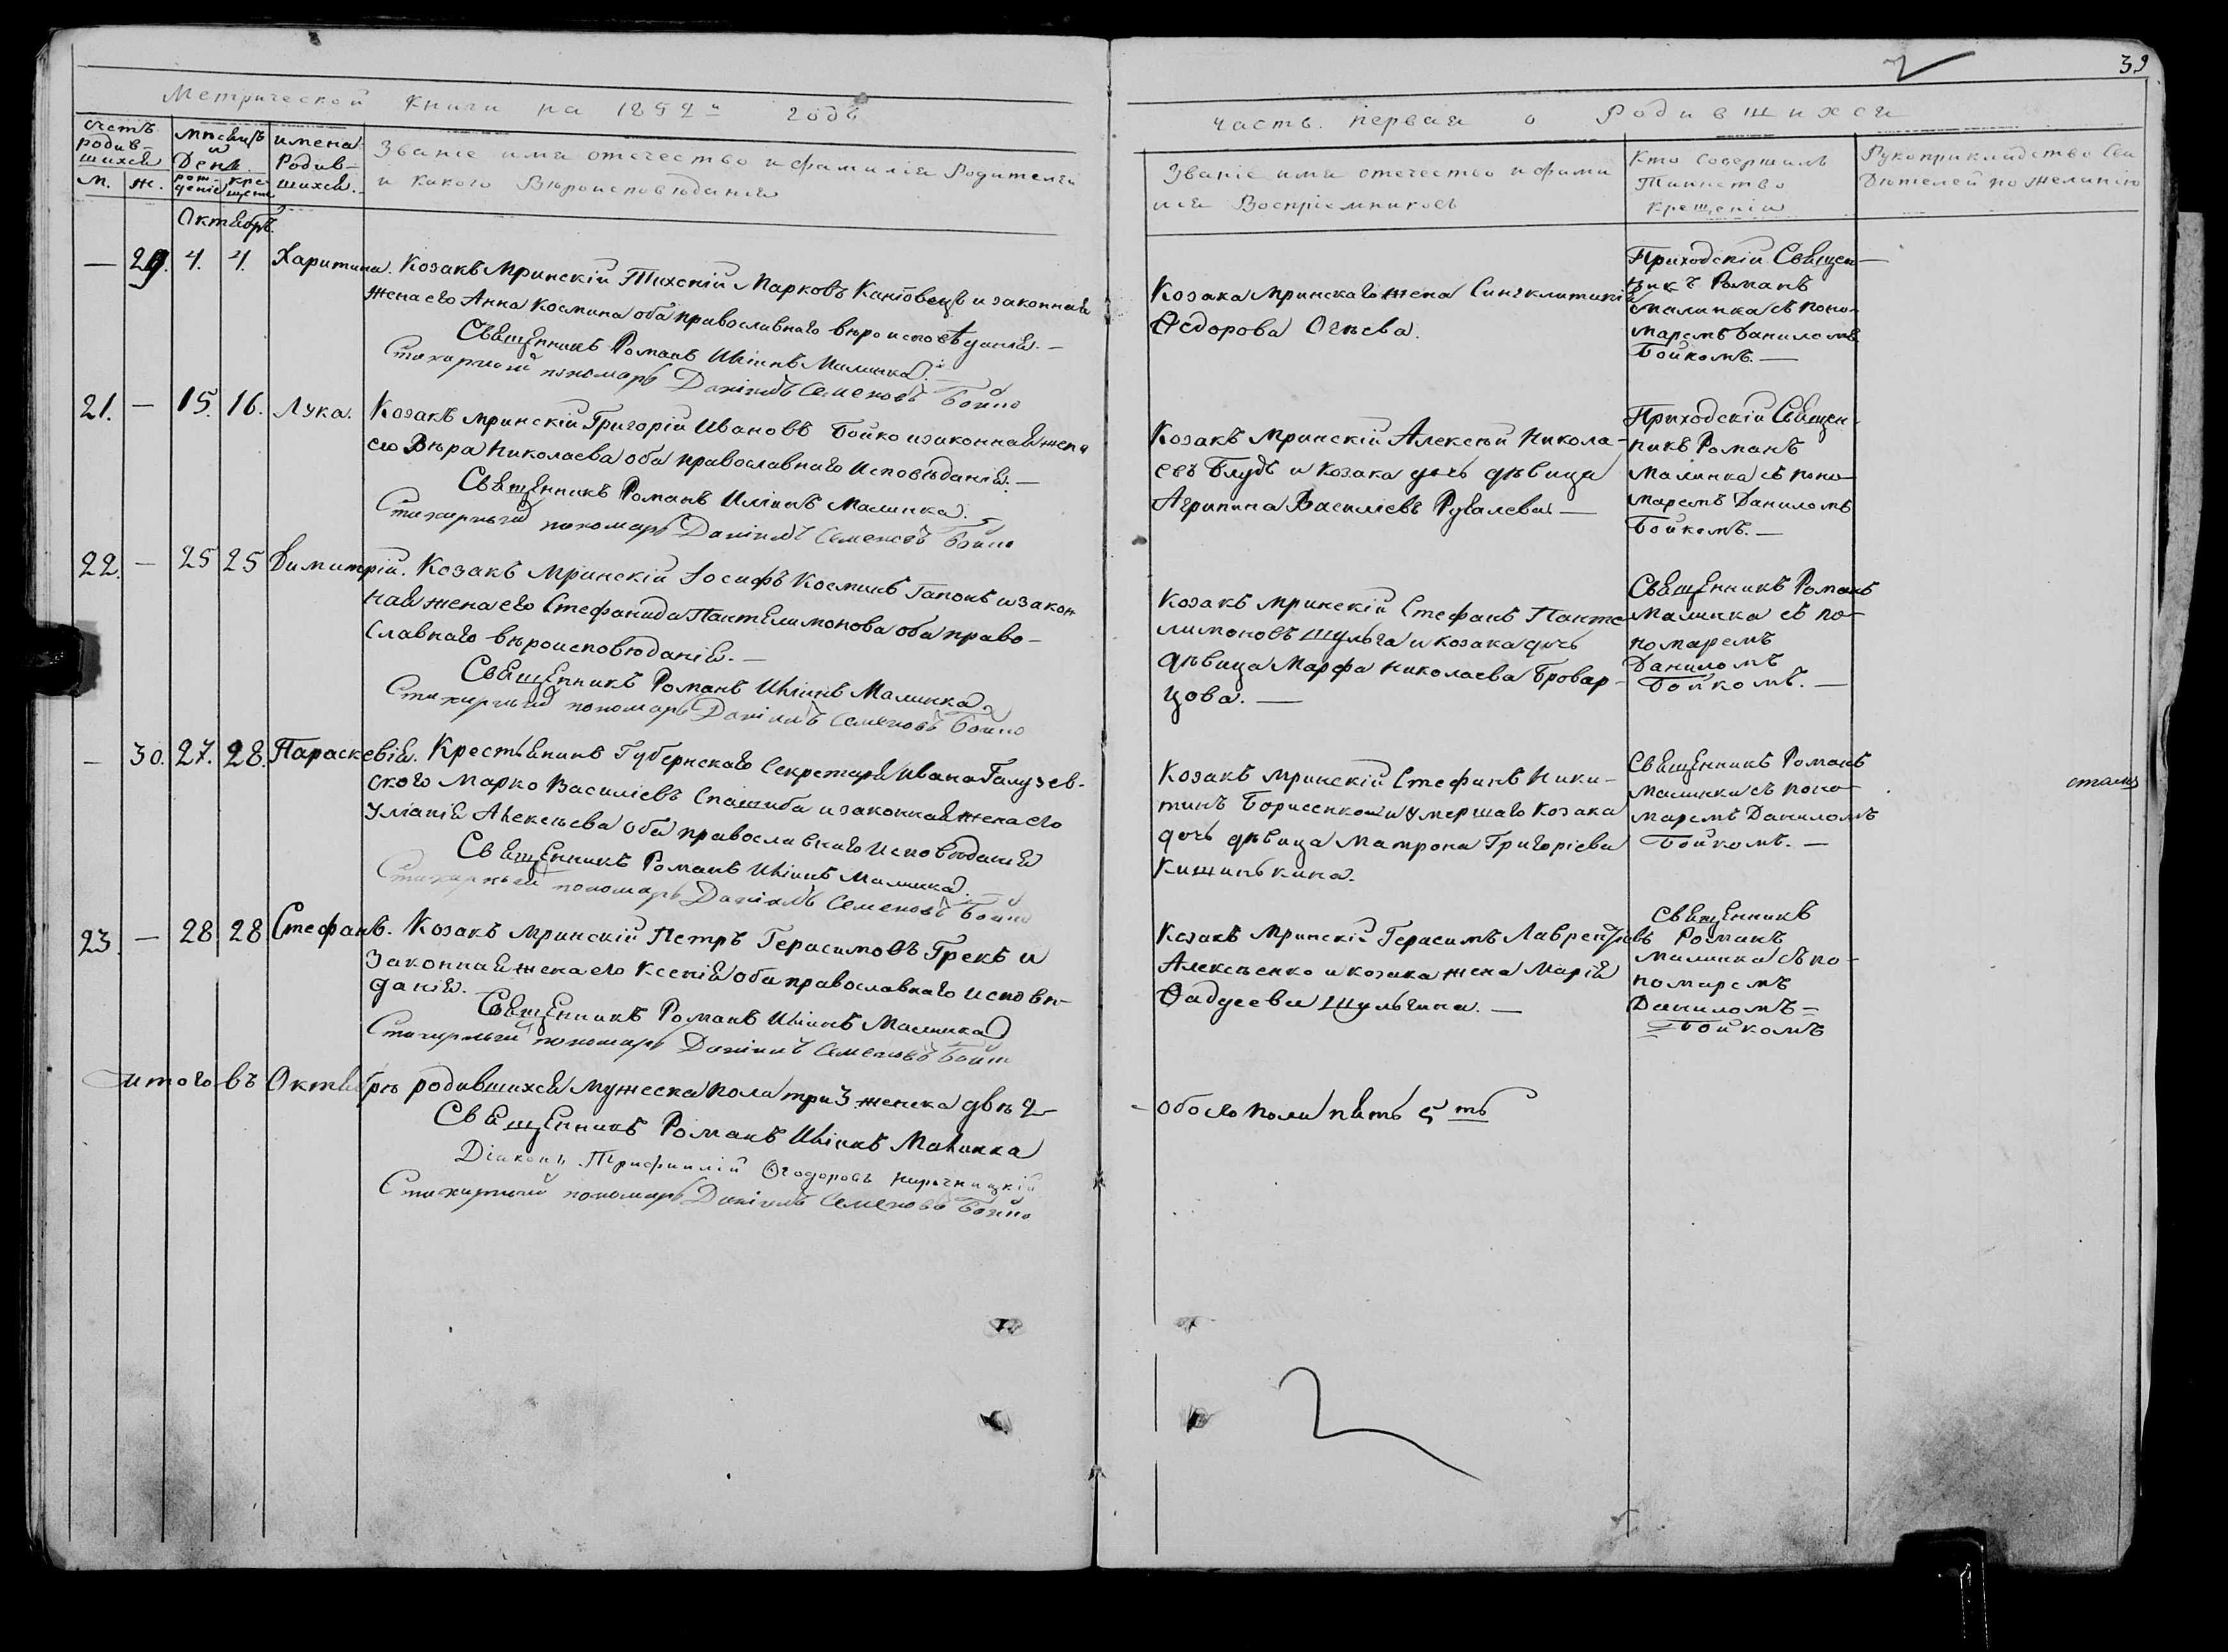 39
Метрической Книги на 1892 годъ
часть первая о Родившихся
счетъ родив-шихся
М. Ж.
мѣсяцъ и День.
рож-деніе кре-щені
имена Родив-шихся.
Званіе имя отечество и фамилія Родителей
и какого Вѣроисповѣданія
Званіе имя отечество и фами
лія Воспріемниковъ
Кто совершилъ
Таинство
Крещенія
Рукоприкладство Сви
дѣтелей по желанію
Октябрь.
— 29. 4. 4. Харитина. Козакъ Мринскій Тихоній Марковъ и законная
жена его Анна Космина оба православнаго вѣроисповѣданія. —
Священникъ Романъ Иліинъ Малинка.
Стихарный пономарь Даніилъ Семеновъ Бойко
Козака Мринскаго жена Синклитикія
Ѳедорова Огіева.
Приходскій Священ-
никъ Романъ
Малинка съ поно-
маремъ Даниломъ
Бойкомъ. —
21. — 15. 16. Лука. Козакъ Мринскій Григорій Ивановъ Бойко и законная жена
его Вѣра Николаева оба православнаго исповѣданія. —
Священникъ Романъ Иліинъ Малинка.
Стихарный пономарь Даніилъ Семеновъ Бойко
Козакъ Мринскій Алексѣй Никола-
евъ Блудъ и козака дочь дѣвица
Агрипина Василіевъ —
Приходскій Священ-
никъ Романъ
Малинка съ поно-
маремъ Даниломъ
Бойкомъ. —
22. — 25 25 Димитрій. Козакъ Мринскій Іосифъ Косминъ Гапонъ и закон
ная жена его Стефанида Пантелимонова оба право-
славнаго вѣроисповѣданія. —
Священникъ Романъ Иліинъ Малинка
Стихарный пономарь Даніилъ Семеновъ Бойко
Козакъ Мринскій Стефанъ Панте-
лимоновъ Шульга и козака дочь
дѣвица Марфа Николаева Бровар-
цова. —
Священникъ Романъ
Малинка съ по-
номаремъ
Даниломъ
Бойкомъ. —
— 30. 27. 28. Параскевія. Крестьянинъ Губернскаго Секретаря Ивана Галузев-
ского Марко Василіевъ Спашиба и законная жена его
Уліанія Алексѣева оба православнаго исповѣданія
Священникъ Романъ Иліинъ Малинка.
Стихарный пономарь Даніилъ Семеновъ Бойко
Козакъ Мринскій Стефанъ Ники-
тинъ Борисенко и умершаго козака
дочь дѣвица Матрона Григоріева
Кишинькина.
Священникъ Романъ
Малинка съ поно-
маремъ Даниломъ
Бойкомъ. —
23. — 28 28 Стефанъ. Козакъ Мринскій Петръ Герасимовъ Грекъ и
законная жена его Ксенія оба православнаго исповѣ-
данія.
Священникъ Романъ Иліинъ Малинка
Стихарный пономарь Даніилъ Семеновъ Бойко
Козакъ Мринскій Герасимъ Лаврентіевъ
Алексѣенко и козака жена Марія
Ѳадеева Шульгина. —
Священникъ
Романъ
Малинка съ по-
номаремъ
Даниломъ =
Бойкомъ
итого въ Октябрѣ родившихся мужеска пола три 3. женска двѣ 2
- обоего пола пять 5 ть
Священникъ Романъ Иліинъ Малинка
Діаконъ Трифиллій Ѳеодоровъ
Стихарный пономарь Даніилъ Семеновъ Бойко